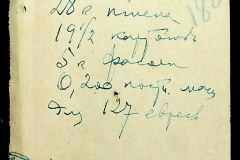 28 к пшена
19 1/2 картош
5 к фасоли
0,200 пост. мас
Для 127 евреев